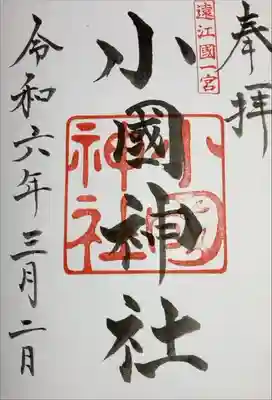 奉拝
遠江國一宮
小國神社
小國神社
令和六年三月二日